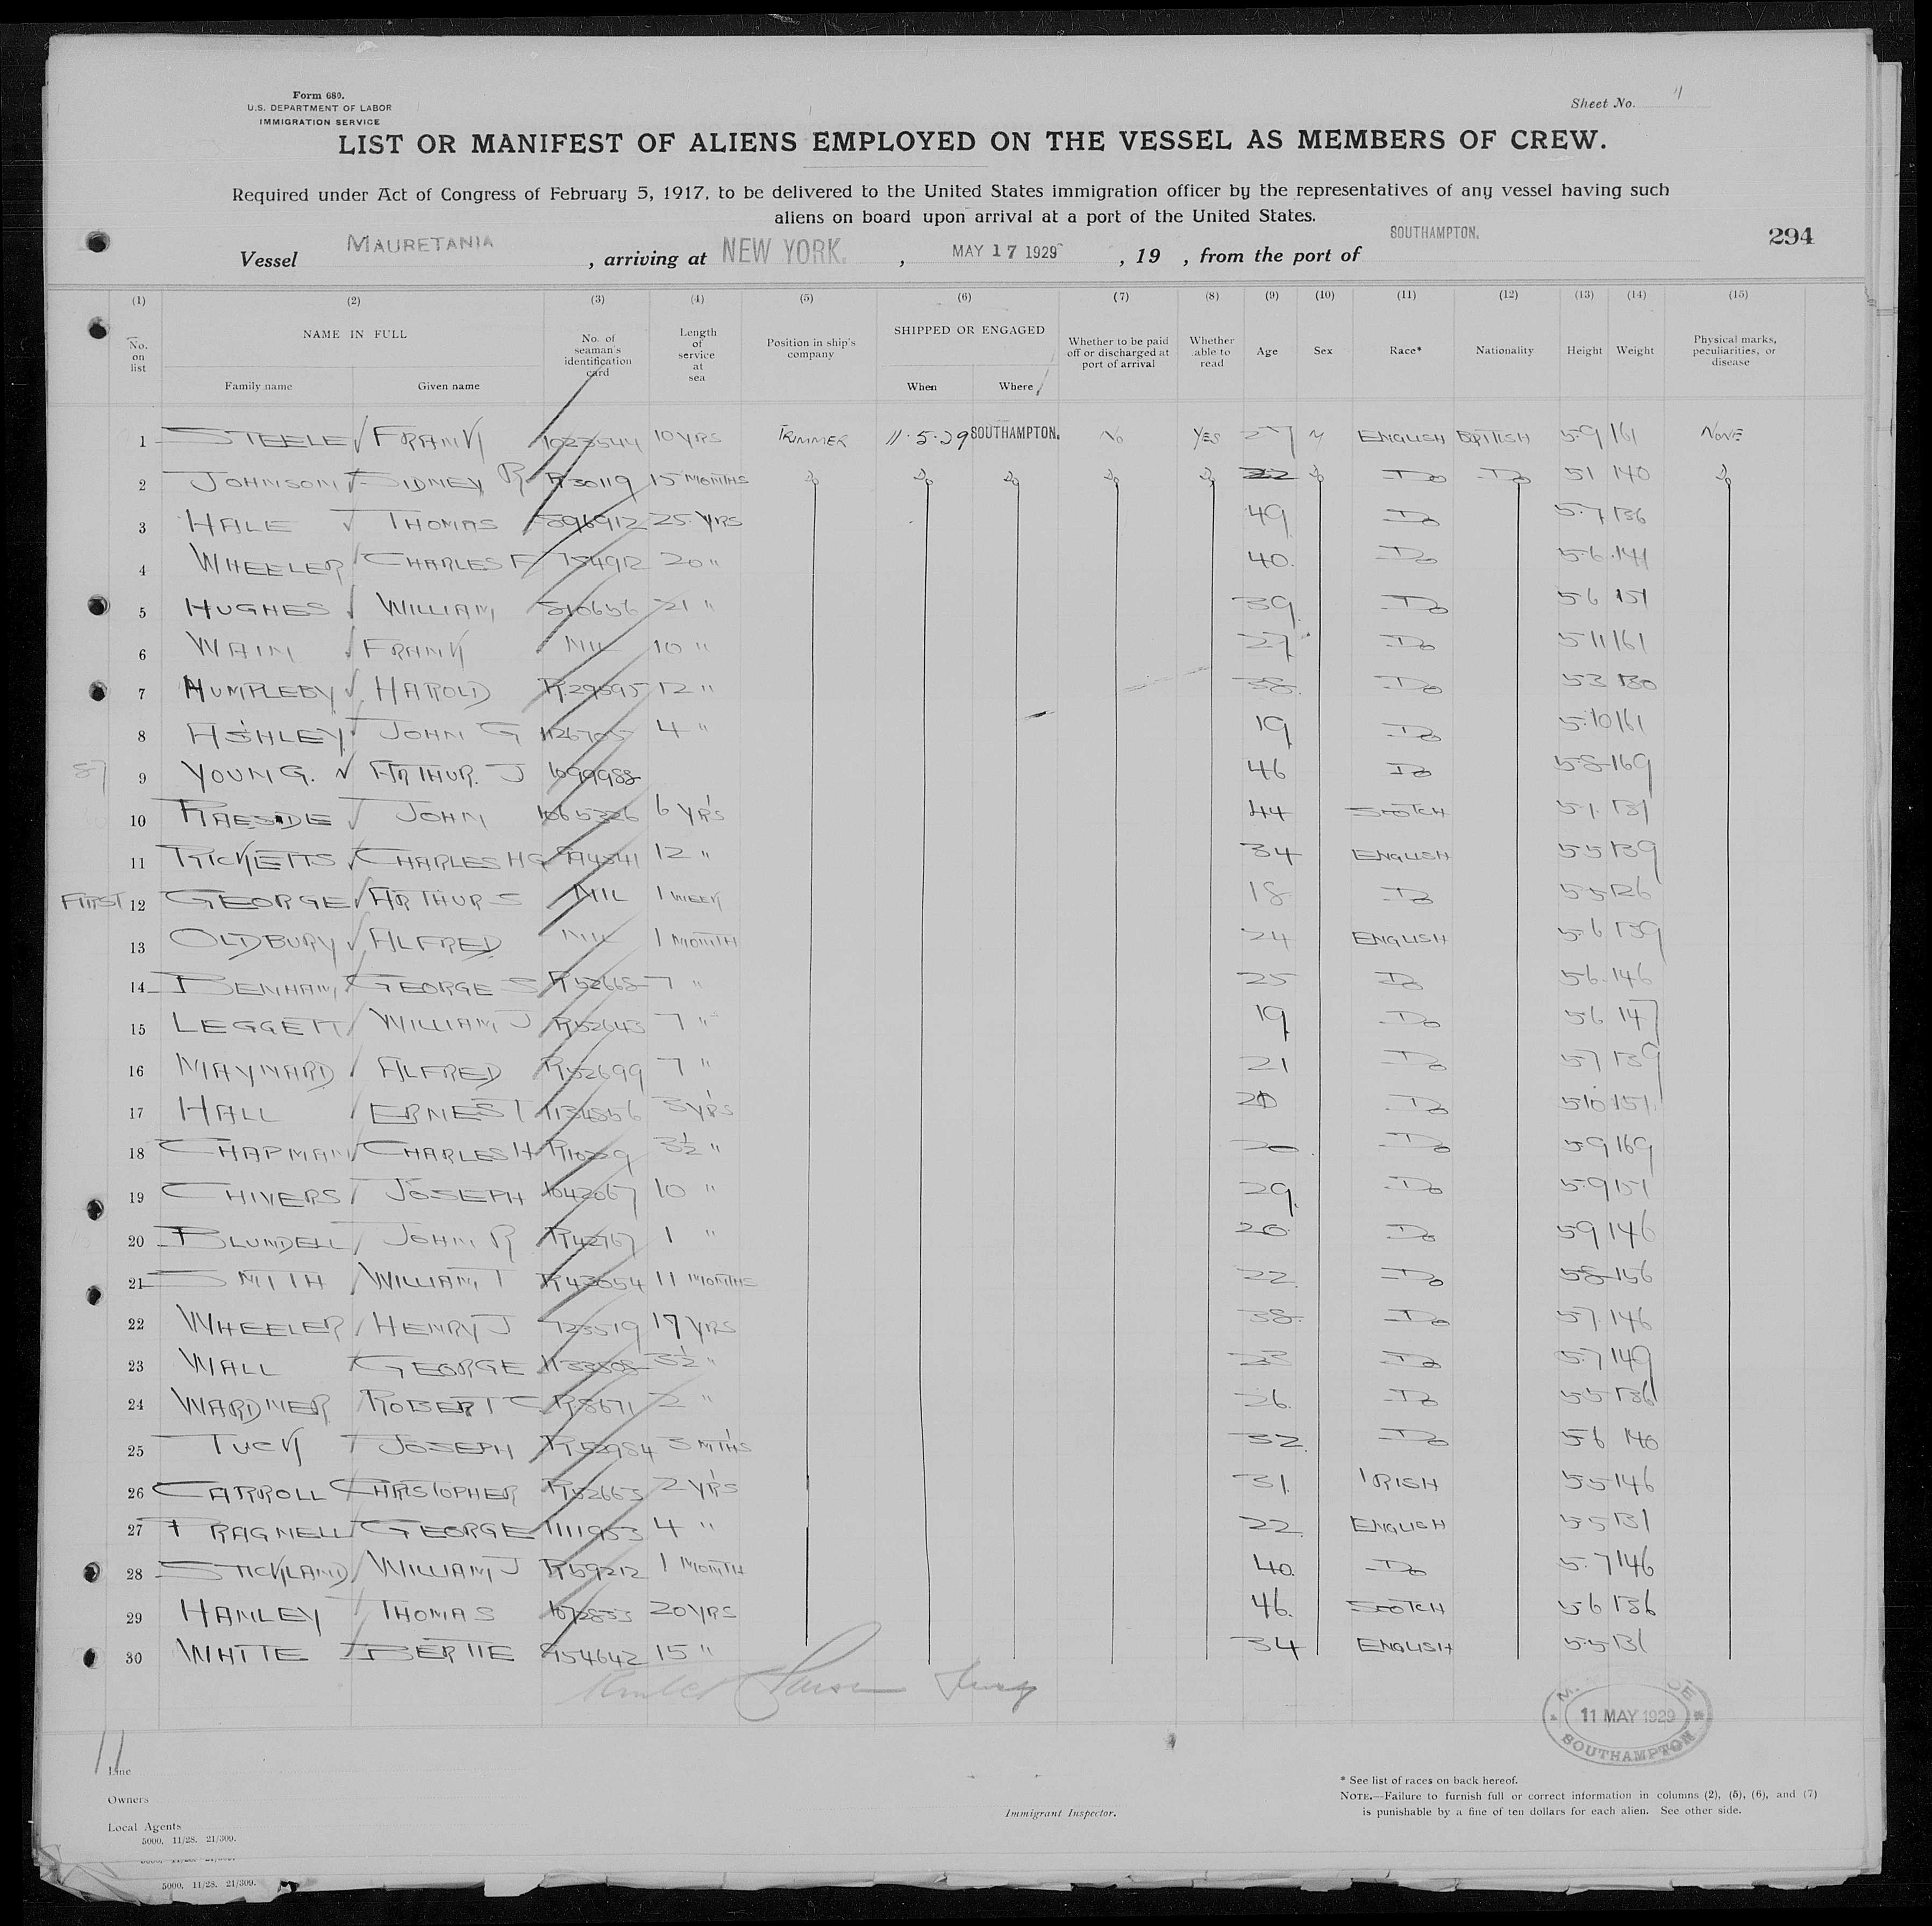 Form 680.
U.S. DEPARTMENT OF LABOR
IMMIGRATION SERVICE
Sheet No.
LIST OR MANIFEST OF ALIENS EMPLOYED ON THE VESSEL AS MEMBERS OF CREW.
Required under Act of Congress of February 5, 1917, to be delivered to the United States immigration officer by the representatives of any vessel having such
aliens on board upon arrival at a port of the United States.
294
Vessel MAURETANIA, arriving at NEW YORK, MAY 17 1929, 19 , from the port of SOUTHAMPTON.
(1) (2) (3) (4) (5) (6) (7) (8) (9) (10) (11) (12) (13) (14) (15)
No. on list NAME IN FULL Family name Given name No. of seaman's identification card Length of service at sea Position in ship's company SHIPPED OR ENGAGED When Where Whether to be paid off or discharged at port of arrival Whether able to read Age Sex Race* Nationality Height Weight Physical marks, peculiarities, or disease
1 STEELE FRANK 1023544 10 YRS TRIMMER 11.5.29 SOUTHAMPTON. NO YES 27 M ENGLISH BRITISH 5.9 161 NONE
2 JOHNSON SIDNEY R R30119 15 MONTHS Do Do Do Do Do 22 Do Do Do 51 140 Do
3 HALE THOMAS 896912 25 YRS 49 Do 5.7 136
4 WHEELER CHARLES F 754912 20 " 40 Do 5.6 141
5 HUGHES WILLIAM 810656 21 " 39 Do 5.6 151
6 WAIN FRANK NIL 10 " 27 Do 5.11 161
7 HUMPLEBY HAROLD R29595 12 " 38 Do 5.3 130
8 ASHLEY JOHN G 4 " 19 Do 5.10 161
87 9 YOUNG. ARTHUR. J 1099988 46 Do 5.8 169
10 RAESIDE JOHN 1065326 6 YRS 44 SCOTCH 5.7. 131
11 RICKETTS CHARLES H G 12 " 34 ENGLISH 5.5 139
FIRST 12 GEORGE ARTHUR S NIL 1 WEEK 18 Do 5.5 126
13 OLDBURY ALFRED NIL 1 MONTH 24 ENGLISH 5.6 139
14 BENHAM GEORGE S R52668 7 " 25 Do 5.6 146
15 LEGGETT WILLIAM J R52643 7 " 19 Do 5.6 147
16 MAYNARD ALFRED R52699 7 " 21 Do 5.7 139
17 HALL ERNEST 1134856 3 YRS 20 Do 5.10 151
18 CHAPMAN CHARLES H 3½ " 20 Do 5.9 169
19 CHIVERS JOSEPH 1042067 10 " 29 Do 5.9 151
20 BLUNDELL JOHN R R42767 1 " 20 Do 5.9 146
21 SMITH WILLIAM T R43054 11 MONTHS 22 Do 5.8 156
22 WHEELER HENRY J 723519 17 YRS 38 Do 5.7 146
23 WALL GEORGE 3½ " 23 Do 5.7 149
24 WARDNER ROBERT C R8671 2 " 26 Do 5.5 136
25 TUCK JOSEPH R53984 3 MTHS 32 Do 5.6 140
26 CARROLL CHRISTOPHER R52663 2 YRS 31 IRISH 5.5 146
27 PRAGNELL GEORGE 1111953 4 " 22 ENGLISH 5.5 131
28 STICKLAND WILLIAM J R59212 1 MONTH 40 Do 5.7 146
29 HANLEY THOMAS 1072853 20 YRS 46 SCOTCH 5.6 136
30 WHITE BERTIE 954642 15 " 34 ENGLISH 5.5 131
11 MAY 1929
SOUTHAMPTON
11
Line
Owners
Local Agents
5000. 11/28. 21/309.
Immigrant Inspector.
* See list of races on back hereof.
NOTE.—Failure to furnish full or correct information in columns (2), (5), (6), and (7)
is punishable by a fine of ten dollars for each alien. See other side.
5000. 11/28. 21/309.